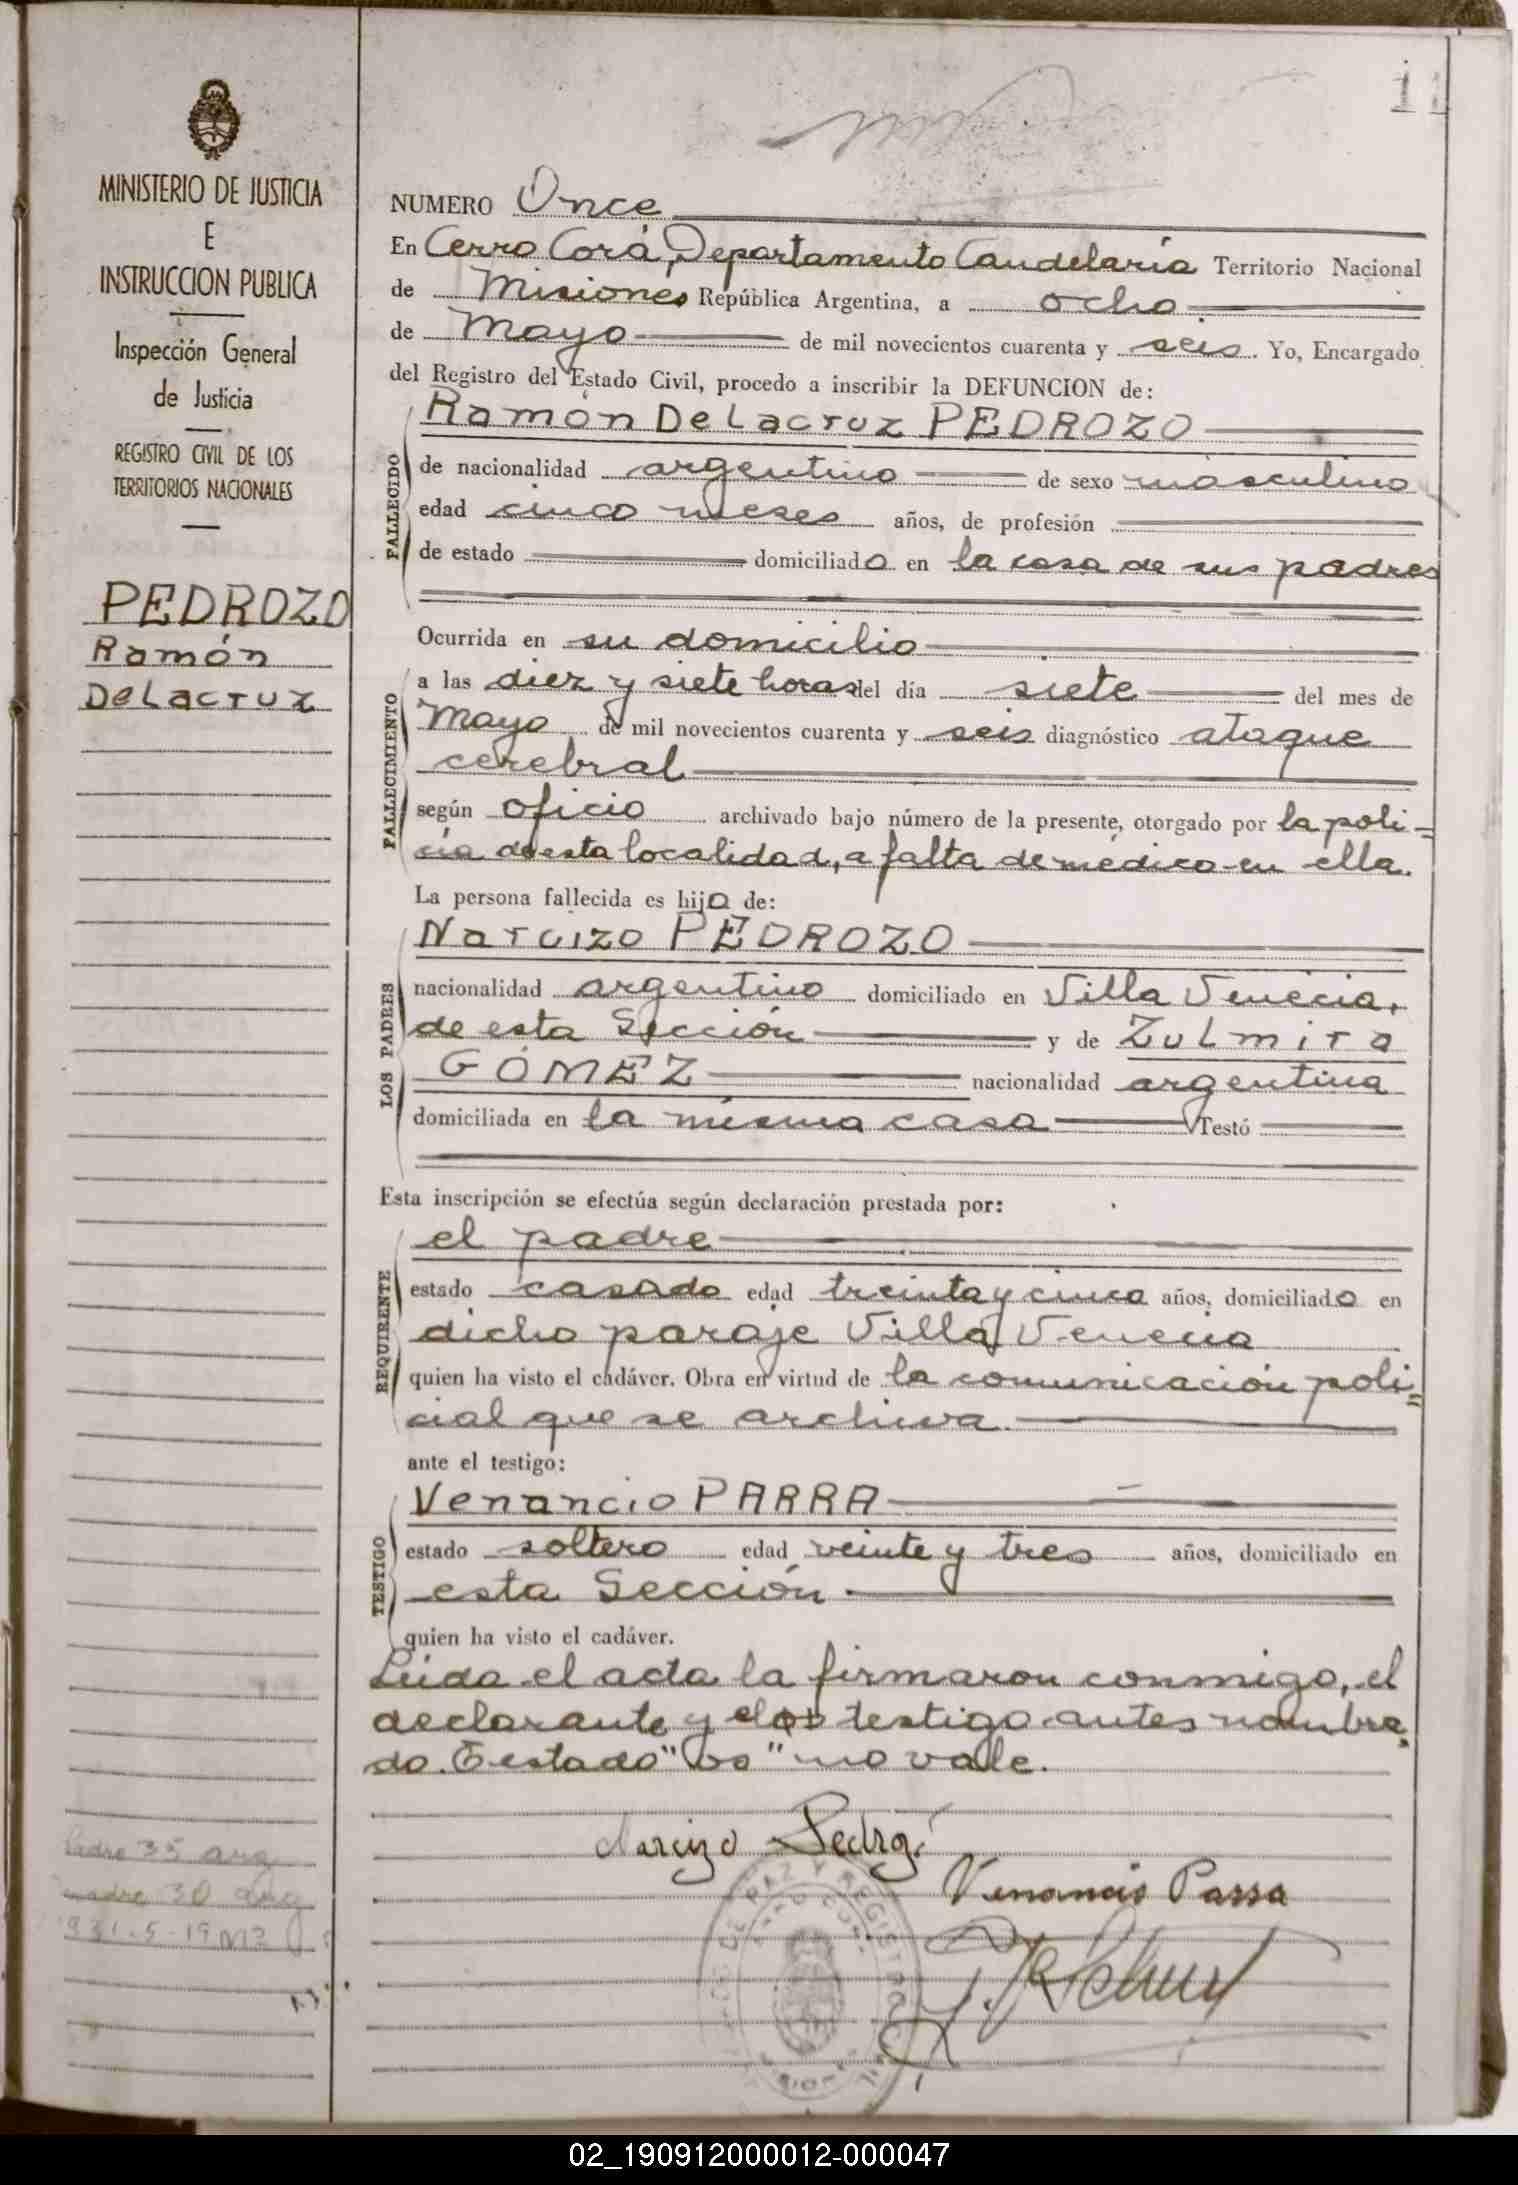 11
MINISTERIO DE JUSTICIA
E
INSTRUCCION PUBLICA
Inspección General
de Justicia
REGISTRO CIVIL DE LOS
TERRITORIOS NACIONALES
PEDROZO
Ramón
Delacruz
Padre 35 arg
madre 30 arg
NUMERO Once
En Cerro Corá, Departamento Candelaria Territorio Nacional
de Misiones República Argentina, a ocho
de Mayo de mil novecientos cuarenta y seis. Yo, Encargado
del Registro del Estado Civil, procedo a inscribir la DEFUNCION de:
Ramón Delacruz PEDROZO
FALLECIDO
de nacionalidad argentino de sexo masculino
edad cinco meses años, de profesión
de estado domiciliado en la casa de sus padres
Ocurrida en su domicilio
FALLECIMIENTO
a las diez y siete horas del día siete del mes de
Mayo de mil novecientos cuarenta y seis diagnóstico ataque
cerebral
según oficio archivado bajo número de la presente, otorgado por la poli=
cía de esta localidad, a falta de médico en ella.
La persona fallecida es hijo de:
LOS PADRES
Narcizo PEDROZO
nacionalidad argentino domiciliado en Villa Venecia,
de esta Sección y de Zulmira
GÓMEZ nacionalidad argentina
domiciliada en la misma casa Testó
Esta inscripción se efectúa según declaración prestada por:
REQUIRENTE
el padre
estado casado edad treinta y cinco años, domiciliado en
dicho paraje Villa Venecia
quien ha visto el cadáver. Obra en virtud de la comunicación poli=
cial que se archiva.
ante el testigo:
TESTIGO
Venancio PARRA
estado soltero edad veinte y tres años, domiciliado en
esta Sección
quien ha visto el cadáver.
Leída el acta la firmaron conmigo, el
declarante y el testigo antes nombra=
do. Testado "os" no vale.
Narcizo
Venancio Parra
02_190912000012-000047